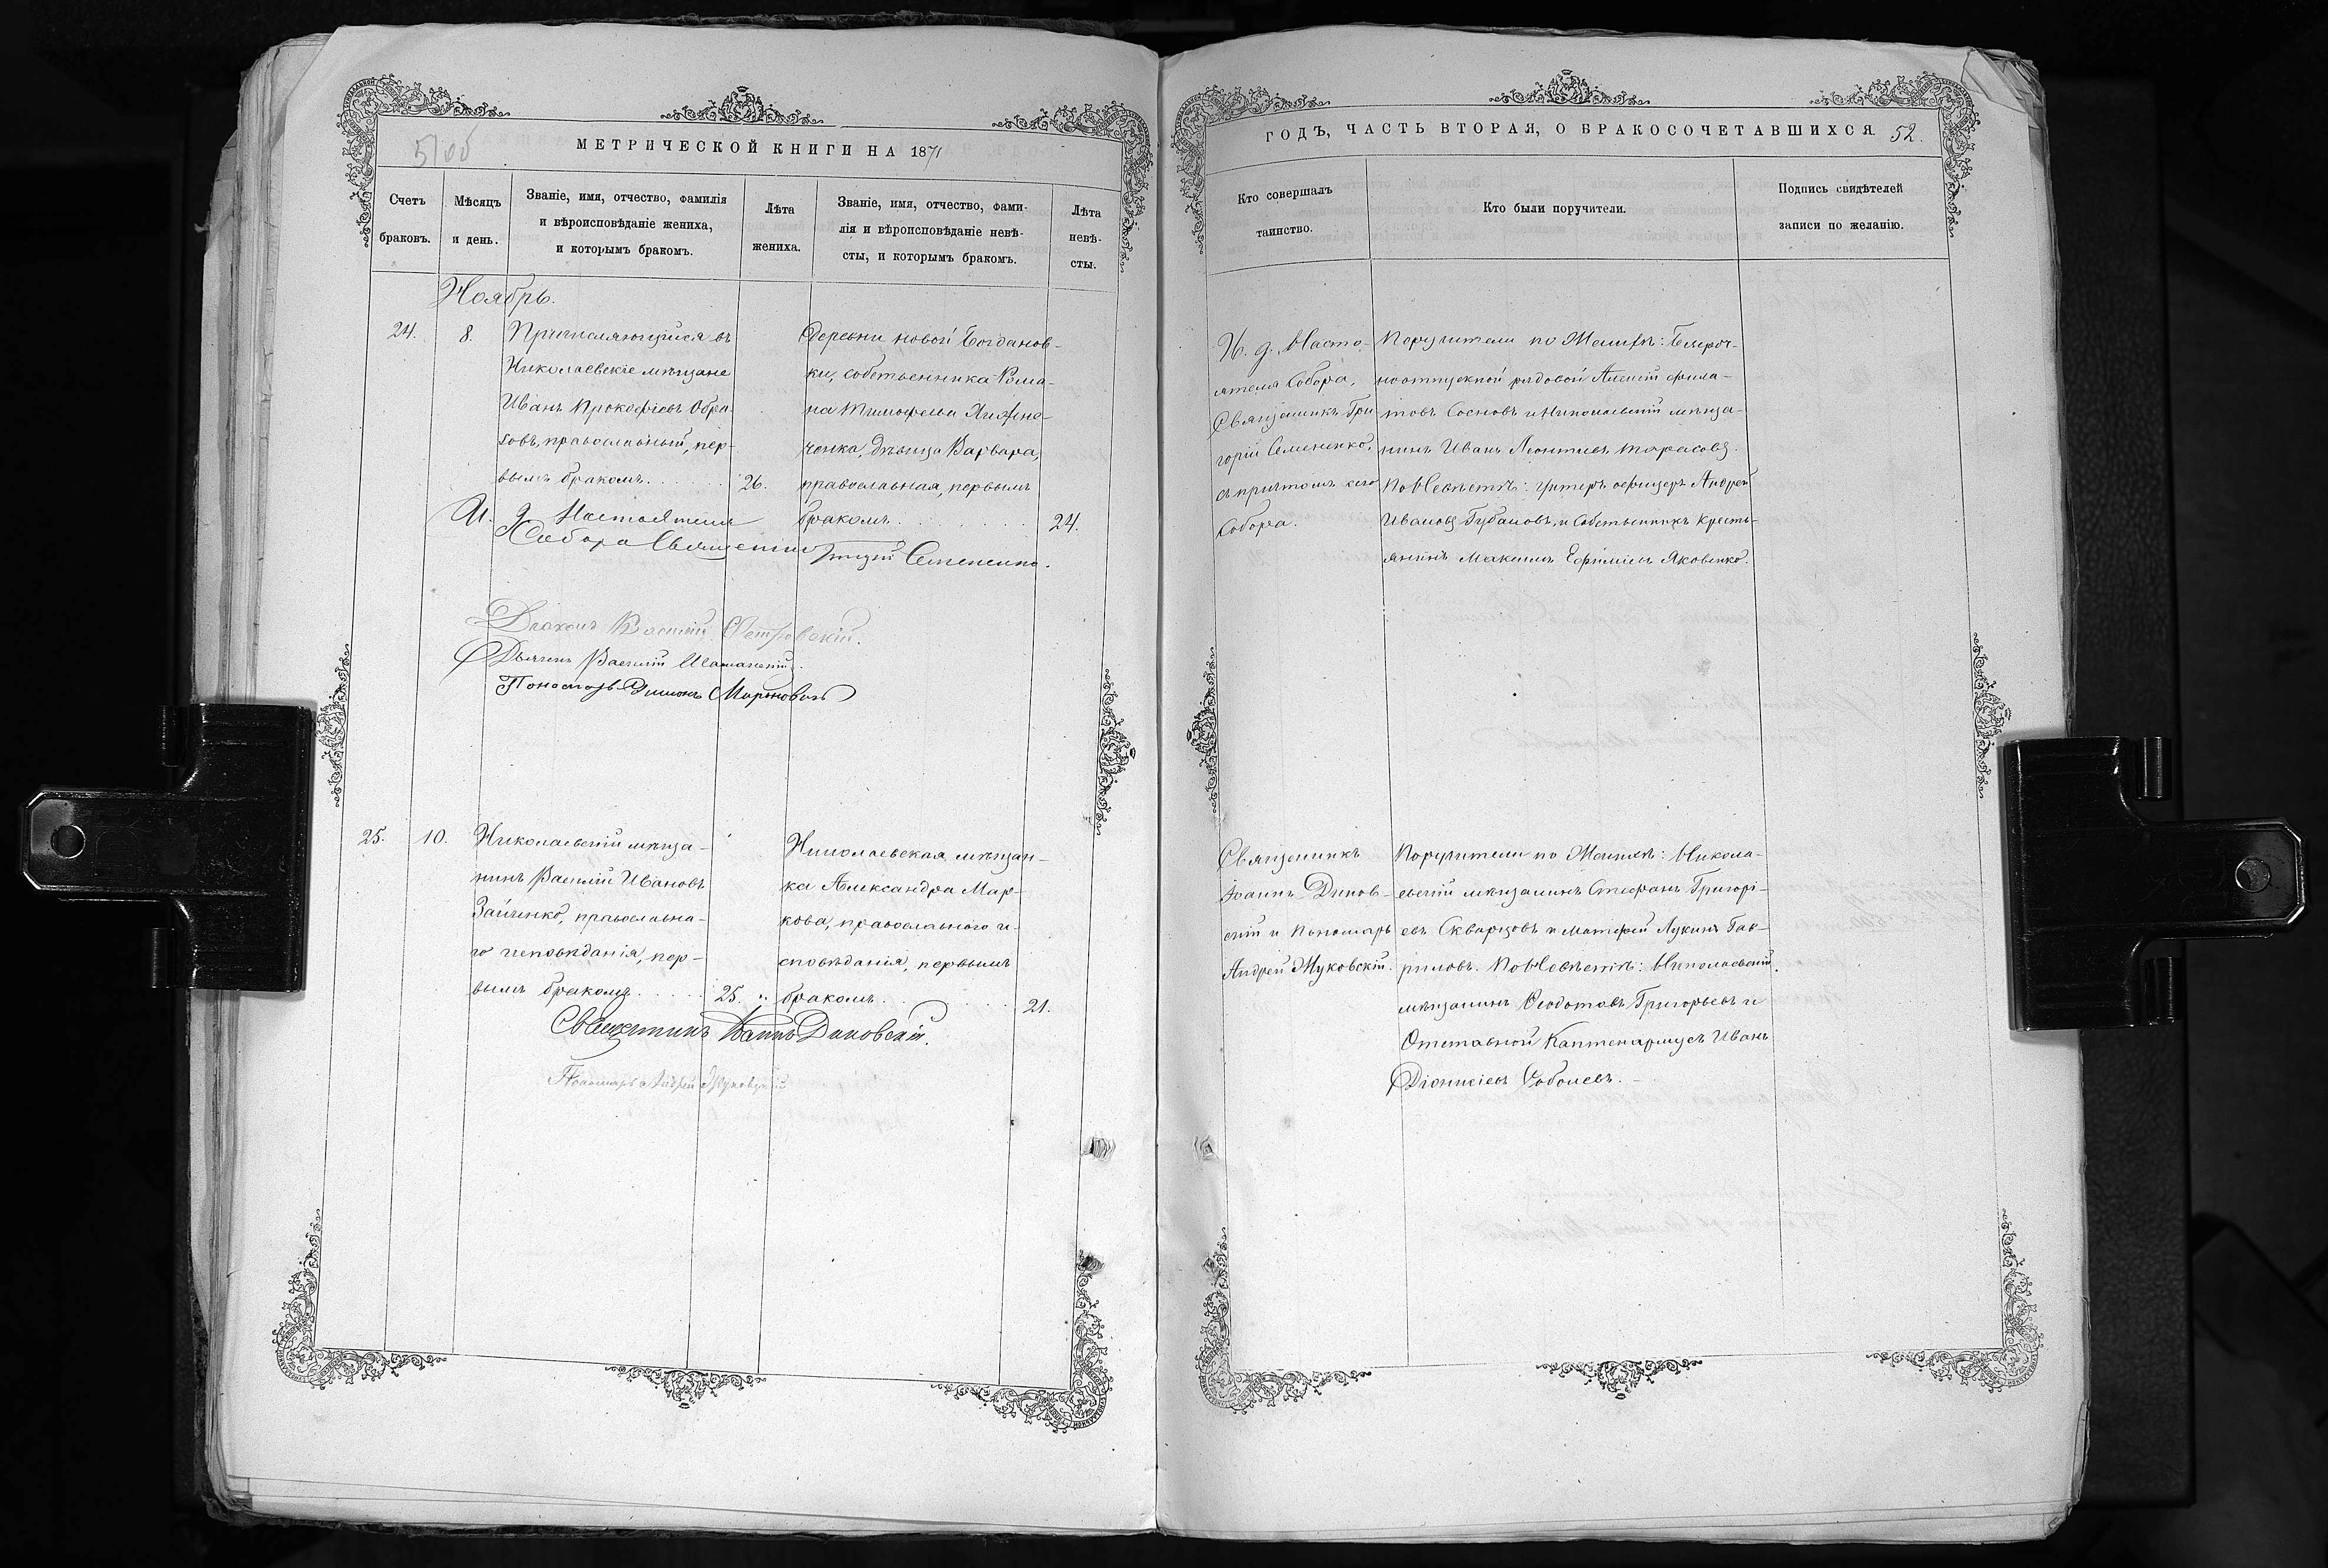 МЕТРИЧЕСКОЙ КНИГИ НА 1871
Счетъ
браковъ.
Мѣсяцъ
и день.
Званіе, имя, отчество, фамилія
и вѣроисповѣданіе жениха,
и которымъ бракомъ.
Лѣта
жениха.
Званіе, имя, отчество, фами-
лія и вѣроисповѣданіе невѣ-
сты, и которымъ бракомъ.
Лѣта
невѣ-
сты.
Ноябрь.
24.
8.
Причисляющійся въ
Николаевскіе мѣщане
Иванъ Прокофіевъ
православный, пер-
вымъ бракомъ
26.
Деревни новой Богданов-
ки, собственника Рома-
на Тимофеева
дѣвица Варвара,
православная, первымъ
бракомъ
24.
И. д. Настоятеля
Собора Священникъ Григорій Семененко.
Діаконъ Василій Петровскій.
Дьячекъ Василій
Пономарь Симонъ
25.
10.
Николаевскій мѣща-
нинъ Василій Ивановъ
Зайченко, православна-
го исповѣданія, пер-
вымъ бракомъ
25.
Николаевская мѣщан-
ка Александра Мар-
кова, православного и-
сповѣданія, первымъ
бракомъ
21.
Священникъ Іоаннъ Диковскій.
Пономарь Андрей Жуковскій
ГОДЪ, ЧАСТЬ ВТОРАЯ, О БРАКОСОЧЕТАВШИХСЯ 52.
Кто совершалъ
таинство.
Кто были поручители.
Подпись свидѣтелей
записи по желанію.
И. д. Насто-
ятеля Собора,
Священникъ Гри-
горій Семененко,
съ причтомъ сего
Собора.
Поручители по Женихѣ: Безсроч-
ноотпускной рядовой Алексій Фила-
товъ Сосновъ и Николаевскій мѣща-
нинъ Иванъ Леонтіевъ Тарасовъ.
По Невѣстѣ: Унтеръ офицеръ Андрей
Ивановъ Губановъ, и Собственникъ кресть-
янинъ Максимъ Ефиміевъ Яковенко.
Священникъ
Іоаннъ Диков-
скій и Пономарь
Андрей Жуковскій.
Поручители по Женихѣ: Никола-
евскій мѣщанинъ Стефанъ Григорі-
евъ Скварцовъ и Матфей Лукинъ Гав-
риловъ. По Невѣстѣ: Николаевскій
мѣщанинъ Ѳеодотовъ Григорьевъ и
Отставной Каптенармусъ Иванъ
Діонисіевъ Соболевъ.